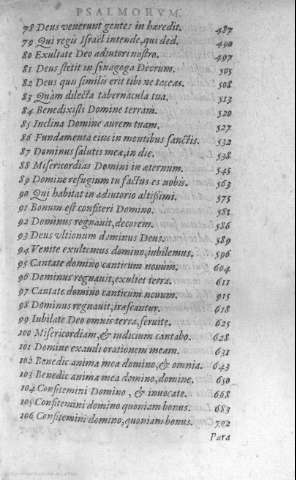 PSALMORVM.
78 Deus venerunt gentes in hæredit. 487
79 Qui regis Israel intende, qui ded. 490
80 Exultate Deo adiutori nostro. 497
81 Deus stetit in sinagoga Deorum. 505
82 Deus quis similis erit tibi ne taceas. 508
83 Quàm dilecta tabernacula tua. 513
84 Benedixisti Domine terram. 520
85 Inclina Domine aurem tuam. 527
86 Fundamenta eius in montibus sanctis. 532
87 Dominus salutis meæ, in die. 538
88 Misericordias Domini in æternum. 545
89 Domine refugium tu factus es nobis. 563
90 Qui habitat in adiutorio altissimi. 575
91 Bonum est confiteri Domino. 581
92 Dominus regnauit, decorem. 586
93 Deus vltionum dominus Deus. 589
94 Venite exultemus domino, iubilemus. 596
95 Cantate domino canticum nouum. 604
96 Dominus regnauit, exultet terra. 611
97 Cantate domino canticum nouum. 915
98 Dominus regnauit, irascantur. 618
99 Iubilate Deo omnis terra, seruite. 625
100 Misericordiam, & iudicium cantabo. 628
101 Domine exaudi orationem meam. 631
102 Benedic anima mea domino, & omnia. 643
103 Benedic anima mea domino, domine. 650
104 Confitemini Domino, & inuocate. 668
105 Confitemini domino quoniam bonus. 683
106 Confitemini domino, quoniam bonus. 702
Para